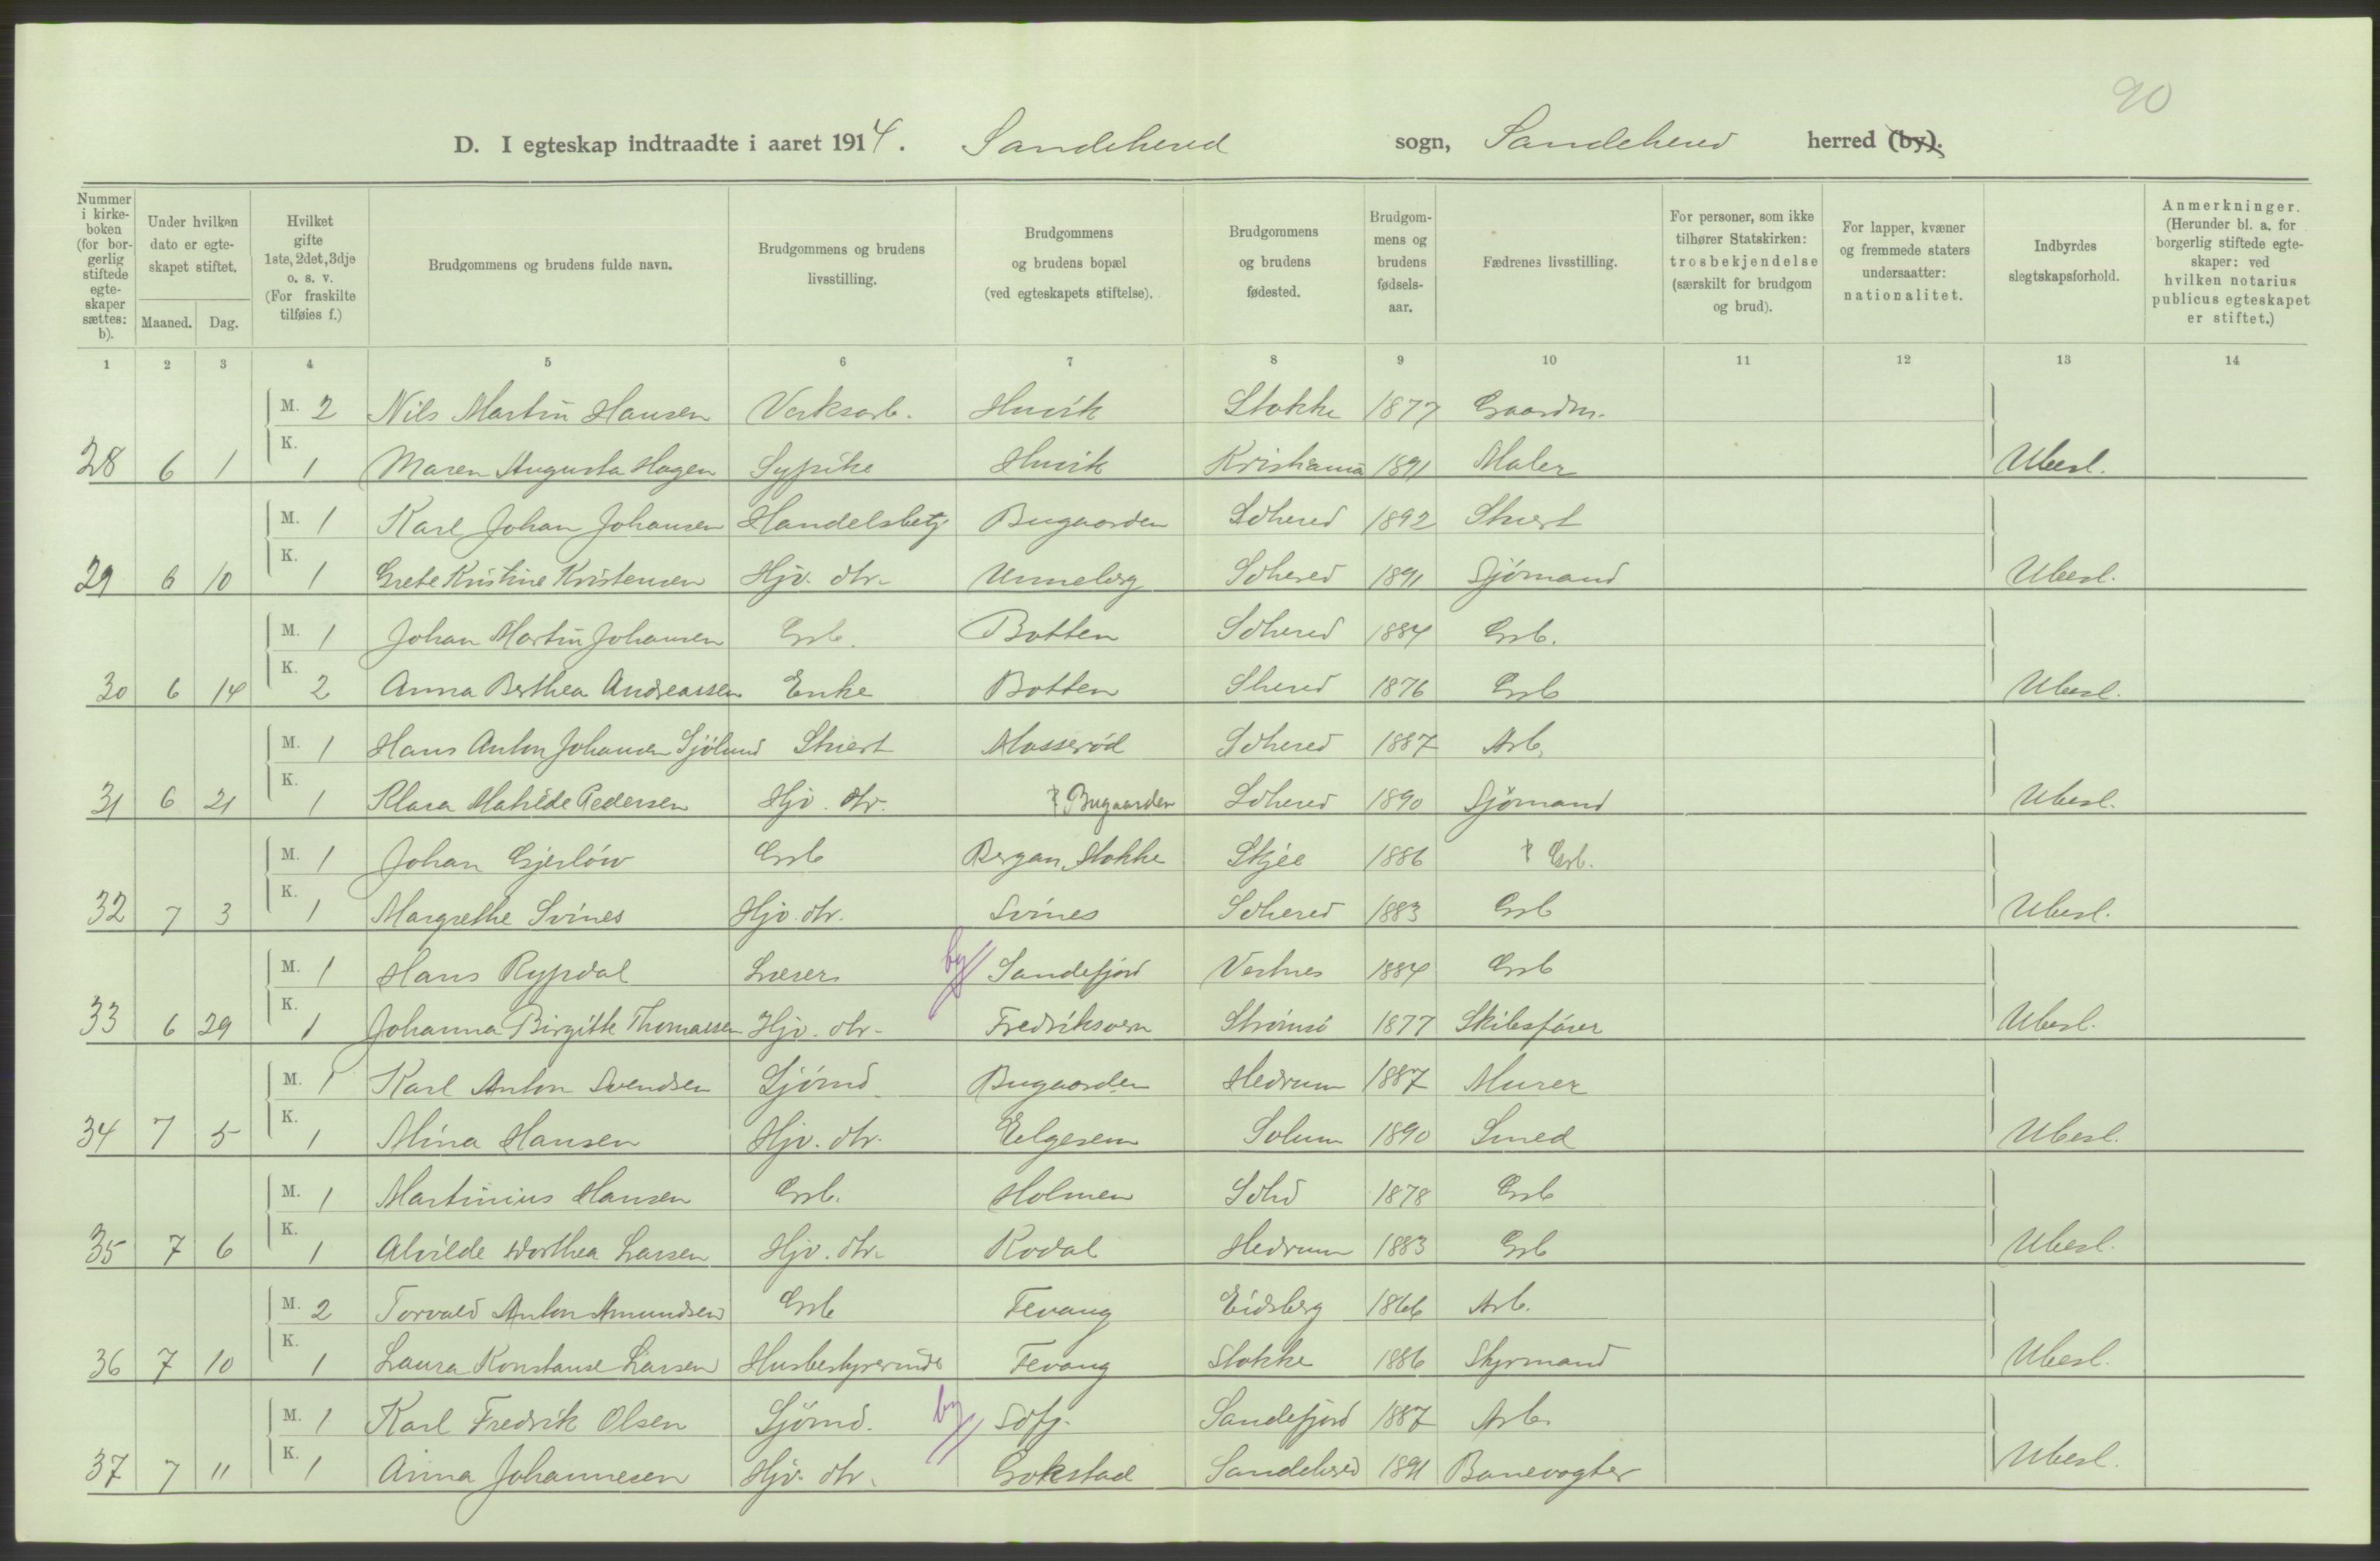 90
D. I egteskap indtraadte i aaret 1914. Sandeherred sogn, Sandeherred herred (by).
Nummer i kirke-boken (for bor-gerlig stiftede egte-skaper sættes: b).
Under hvilken dato er egte-skapet stiftet.
Maaned. Dag.
Hvilket gifte 1ste, 2det, 3dje o. s. v. (For fraskilte tilføies f.)
Brudgommens og brudens fulde navn.
Brudgommens og brudens livsstilling.
Brudgommens og brudens bopæl (ved egteskapets stiftelse).
Brudgommens og brudens fødested.
Brudgom-mens og brudens fødsels-aar.
Fædrenes livsstilling.
For personer, som ikke tilhører Statskirken: trosbekjendelse (særskilt for brudgom og brud).
For lapper, kvæner og fremmede staters undersaatter: nationalitet.
Indbyrdes slegtskapsforhold.
Anmerkninger. (Herunder bl. a. for borgerlig stiftede egte-skaper: ved hvilken notarius publicus egteskapet er stiftet.)
1 2 3 4 5 6 7 8 9 10 11 12 13 14
M. 2 Nils Martin Hansen Verksarb. Huvik Stokke 1877 Gaardbr.
28 6 1 K. 1 Maren Augusta Hagen Sypike Huvik Kristiania 1891 Maler Ubesl.
M. 1 Karl Johan Johansen Handelsbetj Bugaarden Sdherred 1892 Stuert
29 6 10 K. 1 Grete Kristine Kristensen Hjv. dtr. Unneberg Sdherred 1891 Sjömand Ubesl.
M. 1 Johan Martin Johansen Grb. Botten Sdherred 1884 Grb.
30 6 14 K. 2 Anna Berthea Andreassen Enke Botten Sherred 1876 Grb Ubesl.
M. 1 Hans Anton Johansen Sjölund Stuert Mosserød Sdherred 1887 Arb.
31 6 21 K. 1 Klara Mathilde Pedersen Hjv. dtr. ? Bugaarden Sdherred 1890 Sjömand Ubesl.
M. 1 Johan Gjerlöw Grb Bergan, Stokke Skjee 1886 ? Grb.
32 7 3 K. 1 Margrethe Svines Hjv. dtr. Svines Sdherred 1883 Grb Ubesl.
M. 1 Hans Rypdal Lærer by // Sandefjord Vestnes 1884 Grb
33 6 29 K. 1 Johanna Birgitte Thomassen Hjv. dtr. Fredriksvern Strömsö 1877 Skibsfører Ubesl.
M. 1 Karl Anton Svendsen Sjömd. Bugaarden Hedrum 1887 Murer
34 7 5 K. 1 Mina Hansen Hjv. dtr. Eelgesem Solum 1890 Smed Ubesl.
M. 1 Martinius Hansen Grb. Holmen Sdhd 1878 Grb
35 7 6 K. 1 Alvilde Dorthea Larsen Hjv. dtr. Kodal Hedrum 1883 Grb Ubesl.
M. 2 Torvald Anton Amundsen Grb Fevang Eidsberg 1866 Arb.
36 7 10 K. 1 Laura Konstanse Larsen Husbestyrerinde Fevang Stokke 1886 Styrmand Ubesl.
M. 1 Karl Fredrik Olsen Sjömd. by // Sdfj. Sandefjord 1887 Arb.
37 7 11 K. 1 Anna Johannesen Hjv. dtr. Gokstad Sandeherred 1891 Banevogter Ubesl.